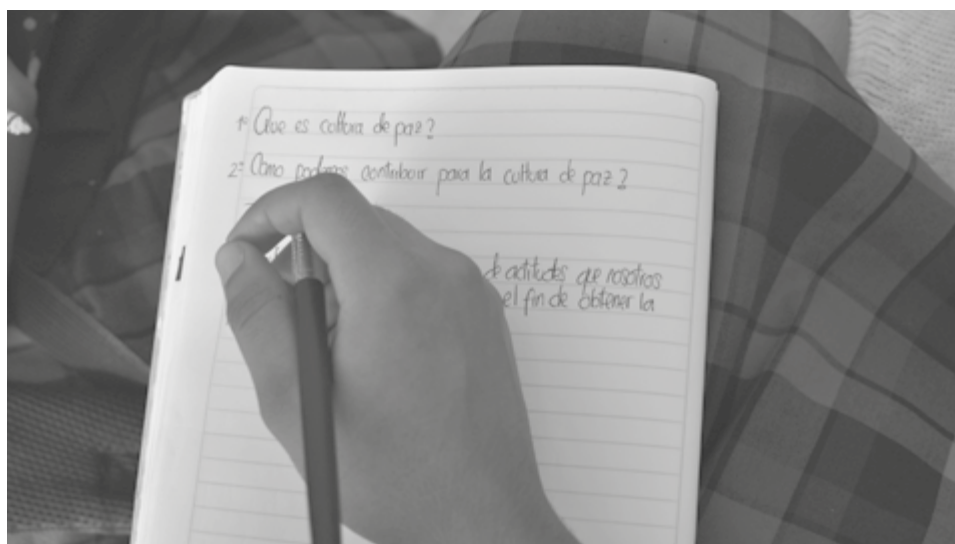 1= Que es cultura de paz?
2= Como podemos contribuir para la cultura de paz?
de actitudes que nosotros
el fin de obtener la